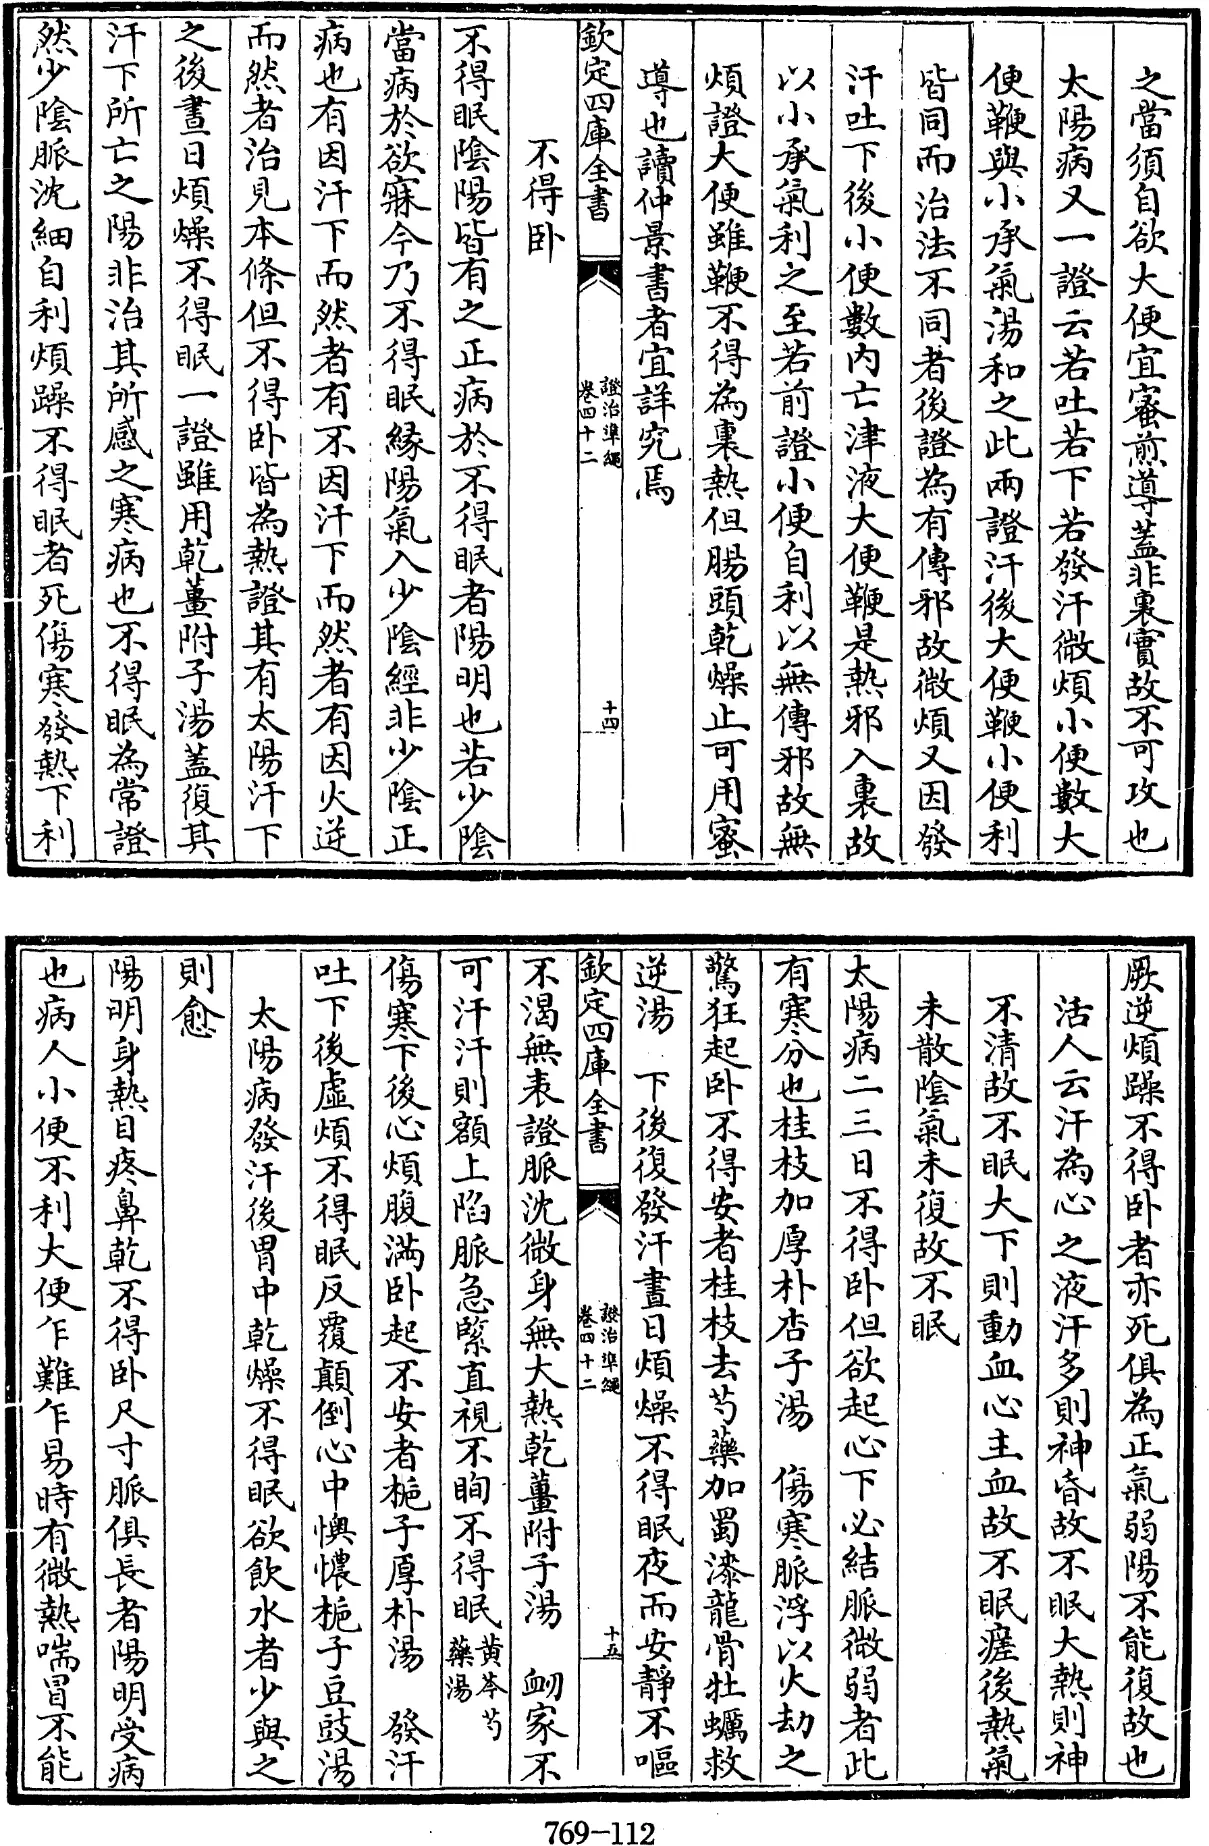 之當須自欲大便宜蜜煎導蓋非裏實故不可攻也
太陽病又一證云若吐若下若發汗微煩小便數大
便鞕與小承氣湯和之此兩證汗後大便鞕小便利
皆同而治法不同者後證為有傳邪故微煩又因發
汗吐下後小便數内亡津液大便鞕是熱邪入裏故
以小承氣利之至若前證小便自利以無傳邪故無
煩證大便雖鞕不得為裏熱但腸頭乾燥止可用蜜
導也讀仲景書者宜詳究焉
欽定四庫全書
證治準繩
卷四十二
十四
不得卧
不得眠陰陽皆有之正病於不得眠者陽明也若少陰
當病於欲寐今乃不得眠緣陽氣入少陰經非少陰正
病也有因汗下而然者有不因汗下而然者有因火逆
而然者治見本條但不得卧皆為熱證其有太陽汗下
之後晝日煩燥不得眠一證雖用乾薑附子湯蓋復其
汗下所亡之陽非治其所感之寒病也不得眠為常證
然少陰脈沈細自利煩躁不得眠者死傷寒發熱下利
厥逆煩躁不得卧者亦死俱為正氣弱陽不能復故也
活人云汗為心之液汗多則神昏故不眠大熱則神
不清故不眠大下則動血心主血故不眠瘥後熱氣
未散陰氣未復故不眠
太陽病二三日不得卧但欲起心下必結脈微弱者此
有寒分也桂枝加厚朴杏子湯　傷寒脈浮以火劫之
驚狂起卧不得安者桂枝去芍藥加蜀漆龍骨牡蠣救
逆湯　下後復發汗晝日煩燥不得眠夜而安靜不嘔
欽定四庫全書
證治準繩
卷四十二
十五
不渴無表證脈沈微身無大熱乾薑附子湯　衂家不
可汗汗則額上陷脈急緊直視不眴不得眠黄芩芍藥湯
傷寒下後心煩腹滿卧起不安者梔子厚朴湯　發汗
吐下後虛煩不得眠反覆顛倒心中懊憹梔子豆豉湯
太陽病發汗後胃中乾燥不得眠欲飲水者少與之
則愈
陽明身熱目疼鼻乾不得卧尺寸脈俱長者陽明受病
也病人小便不利大便乍難乍易時有微熱喘冒不能
769-112